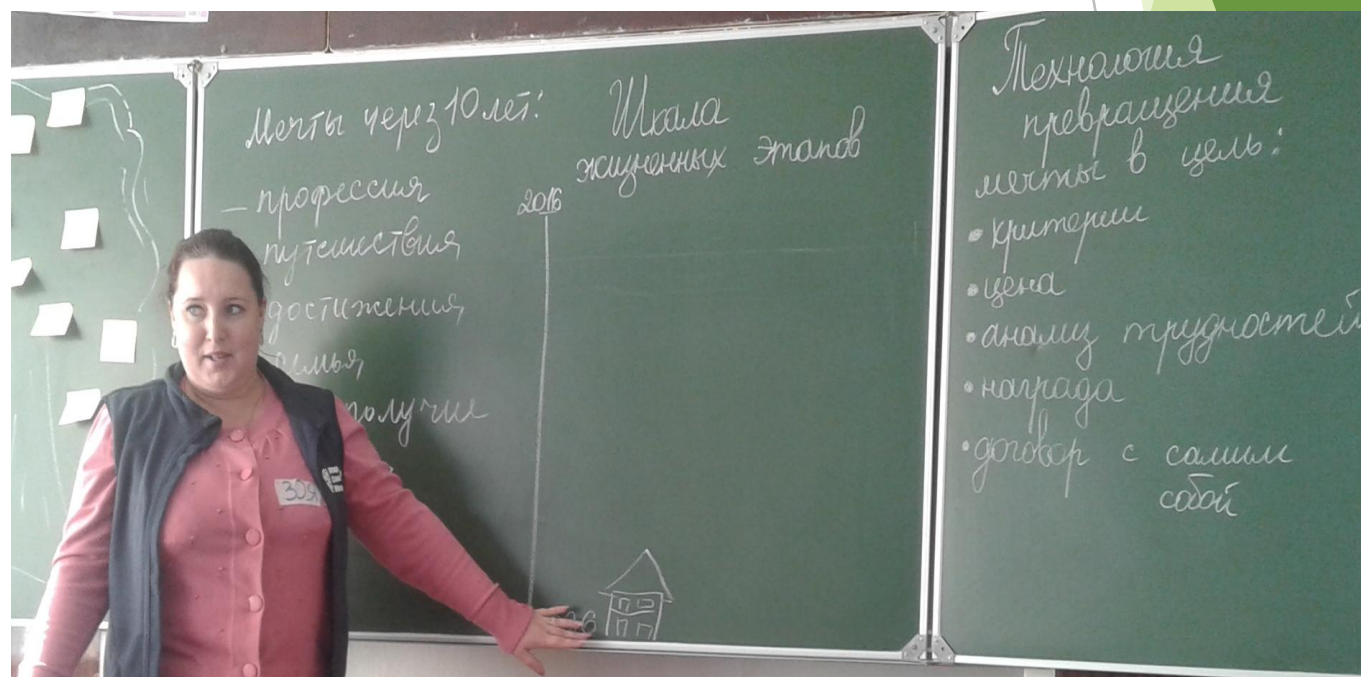 Мечты через 10 лет:
– профессия
путешествия
достижения
Шкала
жизненных этапов
2016
Технология
превращения
мечты в цель:
• критерии
• цена
• анализ трудностей
• награда
• договор с самим
собой
ЗОЯ